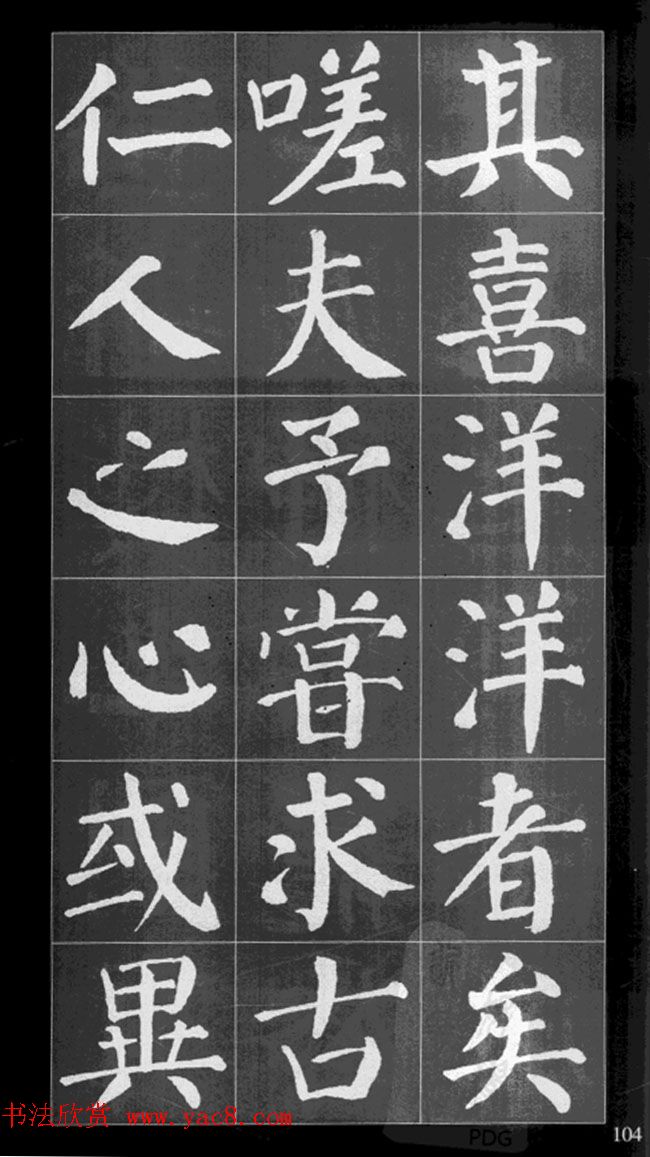 其喜洋洋者矣
嗟夫予嘗求古
仁人之心或異
书法欣赏 www.yac8.com
PDG
104